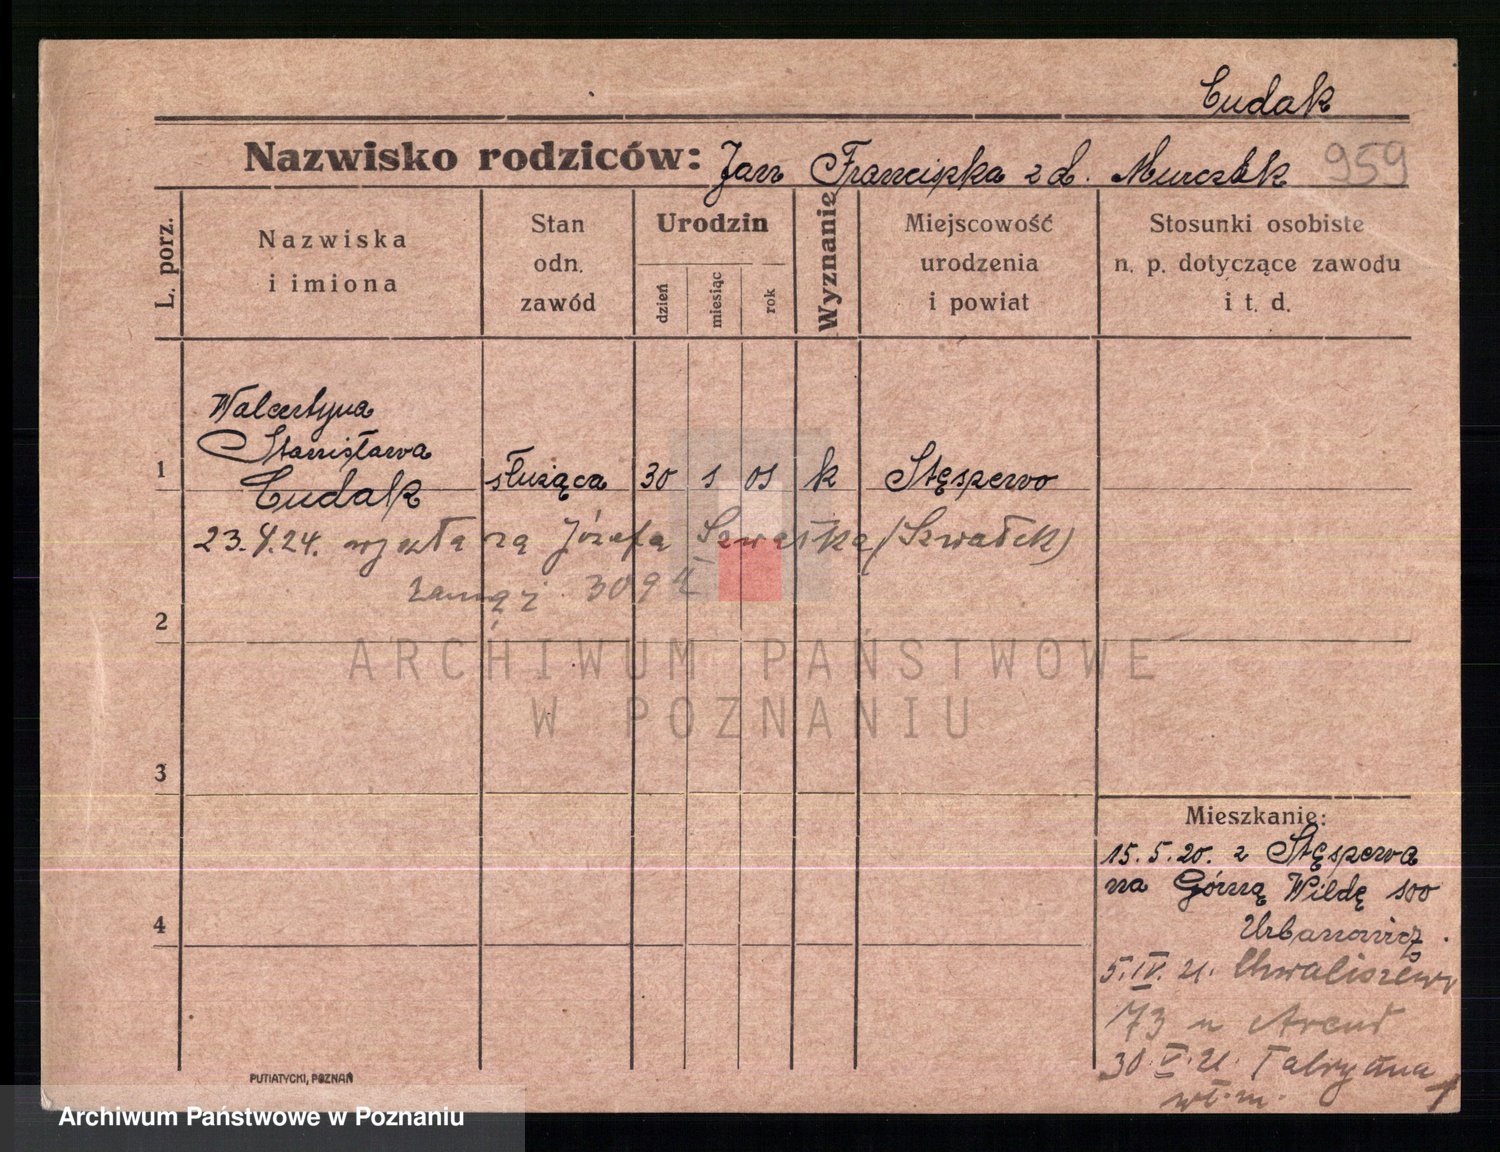 Cudak
Nazwisko rodziców: Jan Franciszka z d. Murczak 959
L. porz.
Nazwiska
i imiona
Stan
odn.
zawód
Urodzin
dzień
miesiąc
rok
Wyznanie
Miejscowość
urodzenia
i powiat
Stosunki osobiste
n. p. dotyczące zawodu
i t. d.
Walentyna
Stanisława
1 Cudak służąca 30 1 01 k Stęszewo
23.4.24. wyszła za Józefa Szwałka (Szwałek)
zamąż 309
2
3
4
Mieszkanie:
15.5.20. z Stęszewa
na Górną Wildę 100
Urbanowicz.
5.IV.21. Chwaliszewo
73 u Arend
30.V.21. Fabryczna
wł. m.
PUTIATYCKI, POZNAŃ
ARCHIWUM PAŃSTWOWE
W POZNANIU
Archiwum Państwowe w Poznaniu